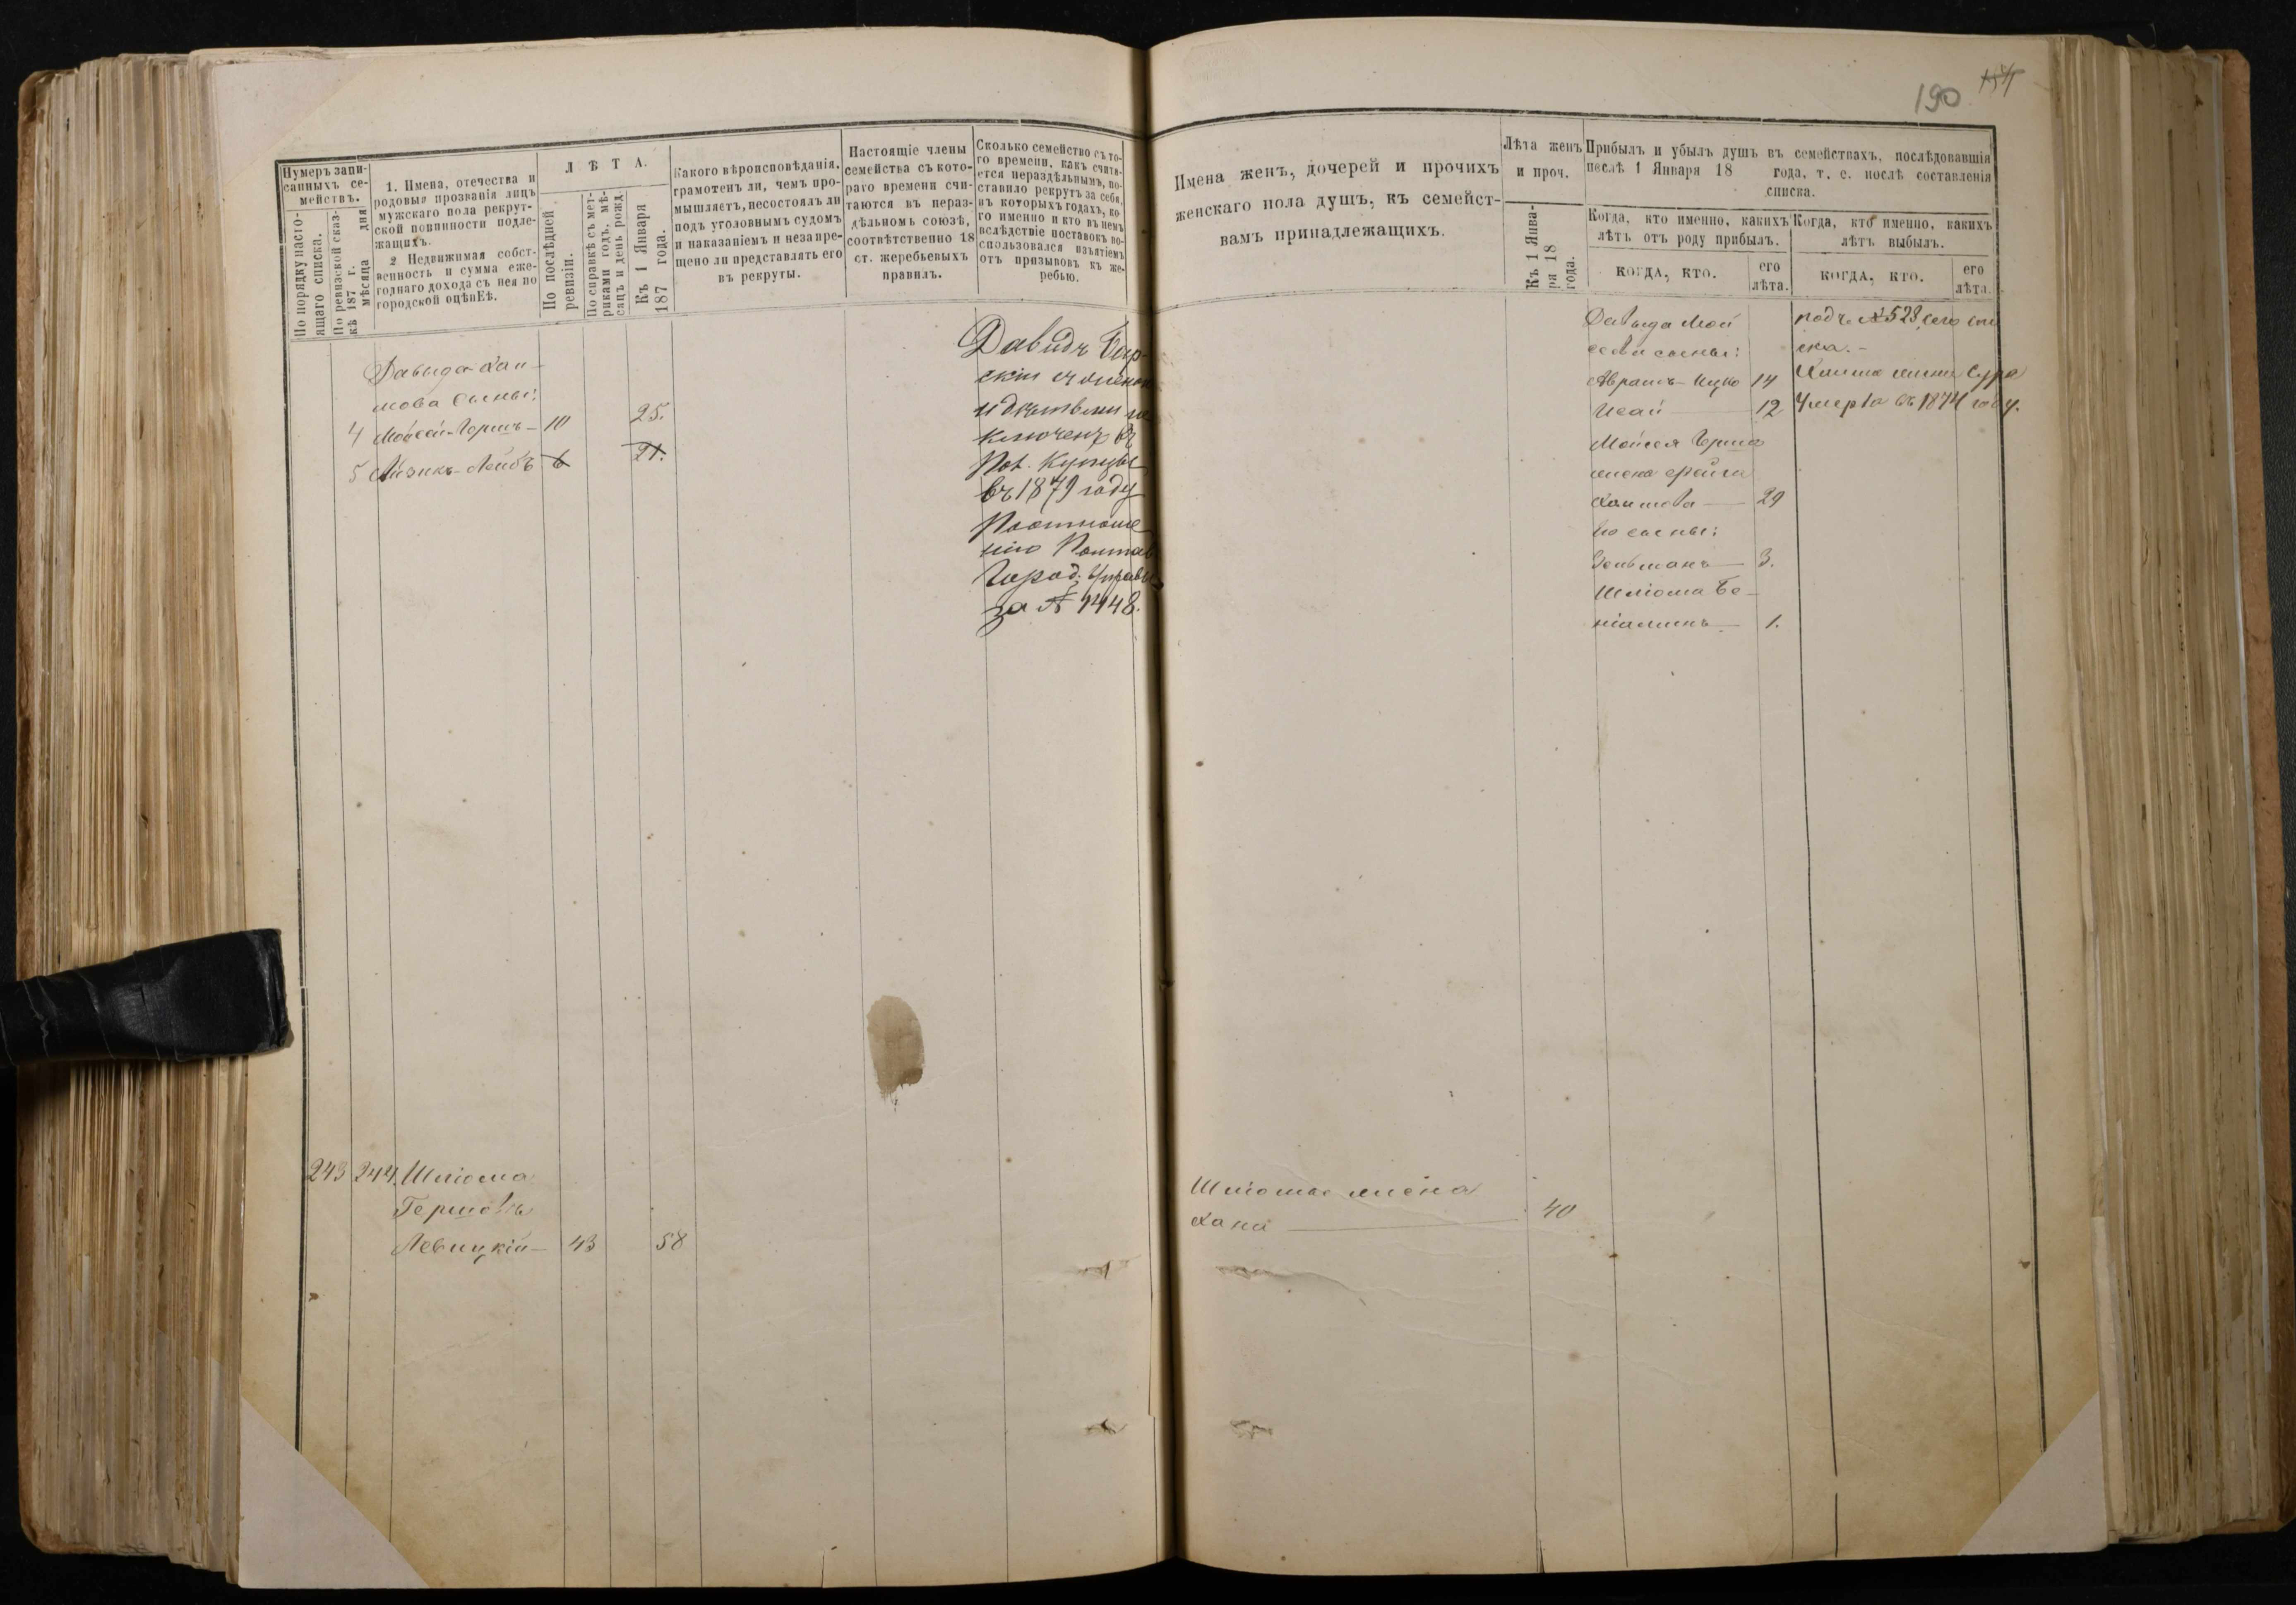 190 154
Нумеръ записанныхъ семействъ.
По порядку настоящаго списка.
По ревизской сказкѣ 187 г. мѣсяца дня
1. Имена, отечества и
родовыя прозванія лицъ
мужскаго пола рекрут-
ской повинности подле-
жащихъ.
2 Недвижимая собст-
венность и сумма еже-
годнаго дохода съ нея по
городской оцѣнЕѣ.
ЛѢТА.
По послѣдней
ревизіи.
По справкѣ съ мет-
риками годъ, мѣ-
сяцъ и день рожд
Къ 1 Января
187 года.
Какого вѣроисповѣданія,
грамотенъ ли, чемъ про-
мышляетъ, несостоялъ ли
подъ уголовнымъ судомъ
и наказаніемъ и незапре-
щено ли представлять его
въ рекруты.
Настоящіе члены
семейства съ кото-
раго времени счи-
таются въ нераз-
дѣльномъ союзѣ,
соотвѣтственно 18
ст. жеребьевыхъ
правилъ.
Сколько семейство съ то-
го времени, какъ счита-
ется нераздѣльнымъ, по-
ставило рекрутъ за себя,
въ которыхъ годахъ, ко-
го именно и кто въ немъ
вслѣдствіе поставокъ во-
спользовался изъятіемъ
отъ призывовъ къ же-
ребью.
Давыда Хаи-
мова сыны:
4 Мойсей-Гершъ — 10 25.
5 Айзикъ-Лейбъ 6 21.
Давидъ
съ женою
и дѣтьми
ключенъ въ
Пол. Купцы
въ 1879 году
Поотноше
нію Полтав
Город. Управы
за № 1448.
243 244. Шліома
Гершовъ
Левицкій — 43 58
Имена женъ, дочерей и прочихъ
женскаго пола душъ, къ семейст-
вамъ принадлежащихъ.
Лѣта женъ
и проч.
Къ 1 Янва-
ря 18
года.
Прибылъ и убылъ душъ въ семействахъ, послѣдовавшія
песлѣ 1 Января 18 года, т. е. послѣ составленія
списка.
Когда, кто именно, какихъ
лѣтъ отъ роду прибылъ.
КОГДА, КТО.
его
лѣта.
Когда, кто именно, какихъ
лѣтъ выбылъ.
КОГДА, КТО.
его
лѣта.
Давыда Мой
сеева сыны:
Абрамъ-Ицко 14
Исай — 12
Мойсея Герша
жена Фейга
Хаимова — 29
его сыны:
Зельманъ — 3.
Шліома Бе-
ніаминъ — 1.
подъ № 528 сего спи
ска. -
Хаима жена Сура
Умерла въ 1874 году.
Шліомы жена
Хана — 40